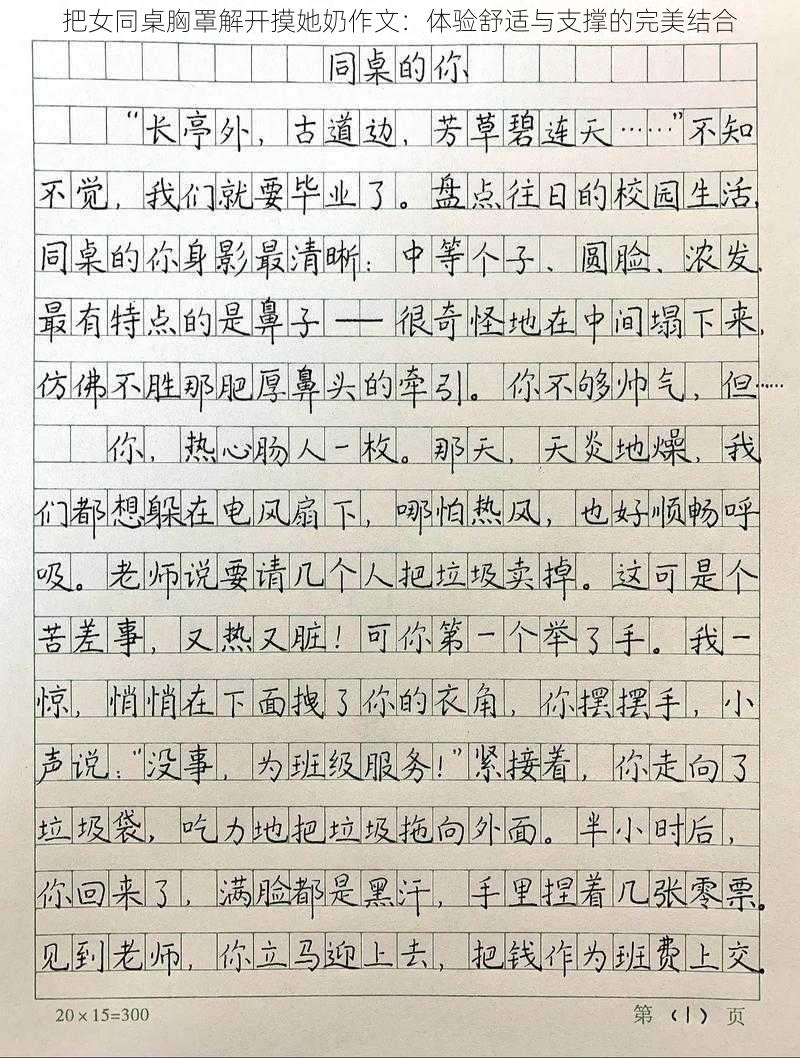 把女同桌胸罩解开摸她奶作文：体验舒适与支撑的完美结合
同桌的你
“长亭外，古道边，芳草碧连天……”不知
不觉，我们就要毕业了。盘点往日的校园生活，
同桌的你身影最清晰：中等个子、圆脸、浓发，
最有特点的是鼻子——很奇怪地在中间塌下来，
仿佛不胜那肥厚鼻头的牵引。你不够帅气，但……
你，热心肠人一枚。那天，天炎地燥，我
们都想躲在电风扇下，哪怕热风，也好顺畅呼
吸。老师说要请几个人把垃圾卖掉。这可是个
苦差事，又热又脏！可你第一个举了手。我一
惊，悄悄在下面拽了你的衣角，你摆摆手，小
声说：“没事，为班级服务！”紧接着，你走向了
垃圾袋，吃力地把垃圾拖向外面。半小时后，
你回来了，满脸都是黑汗，手里捏着几张零票。
见到老师，你立马迎上去，把钱作为班费上交。
20×15=300
第（1）页